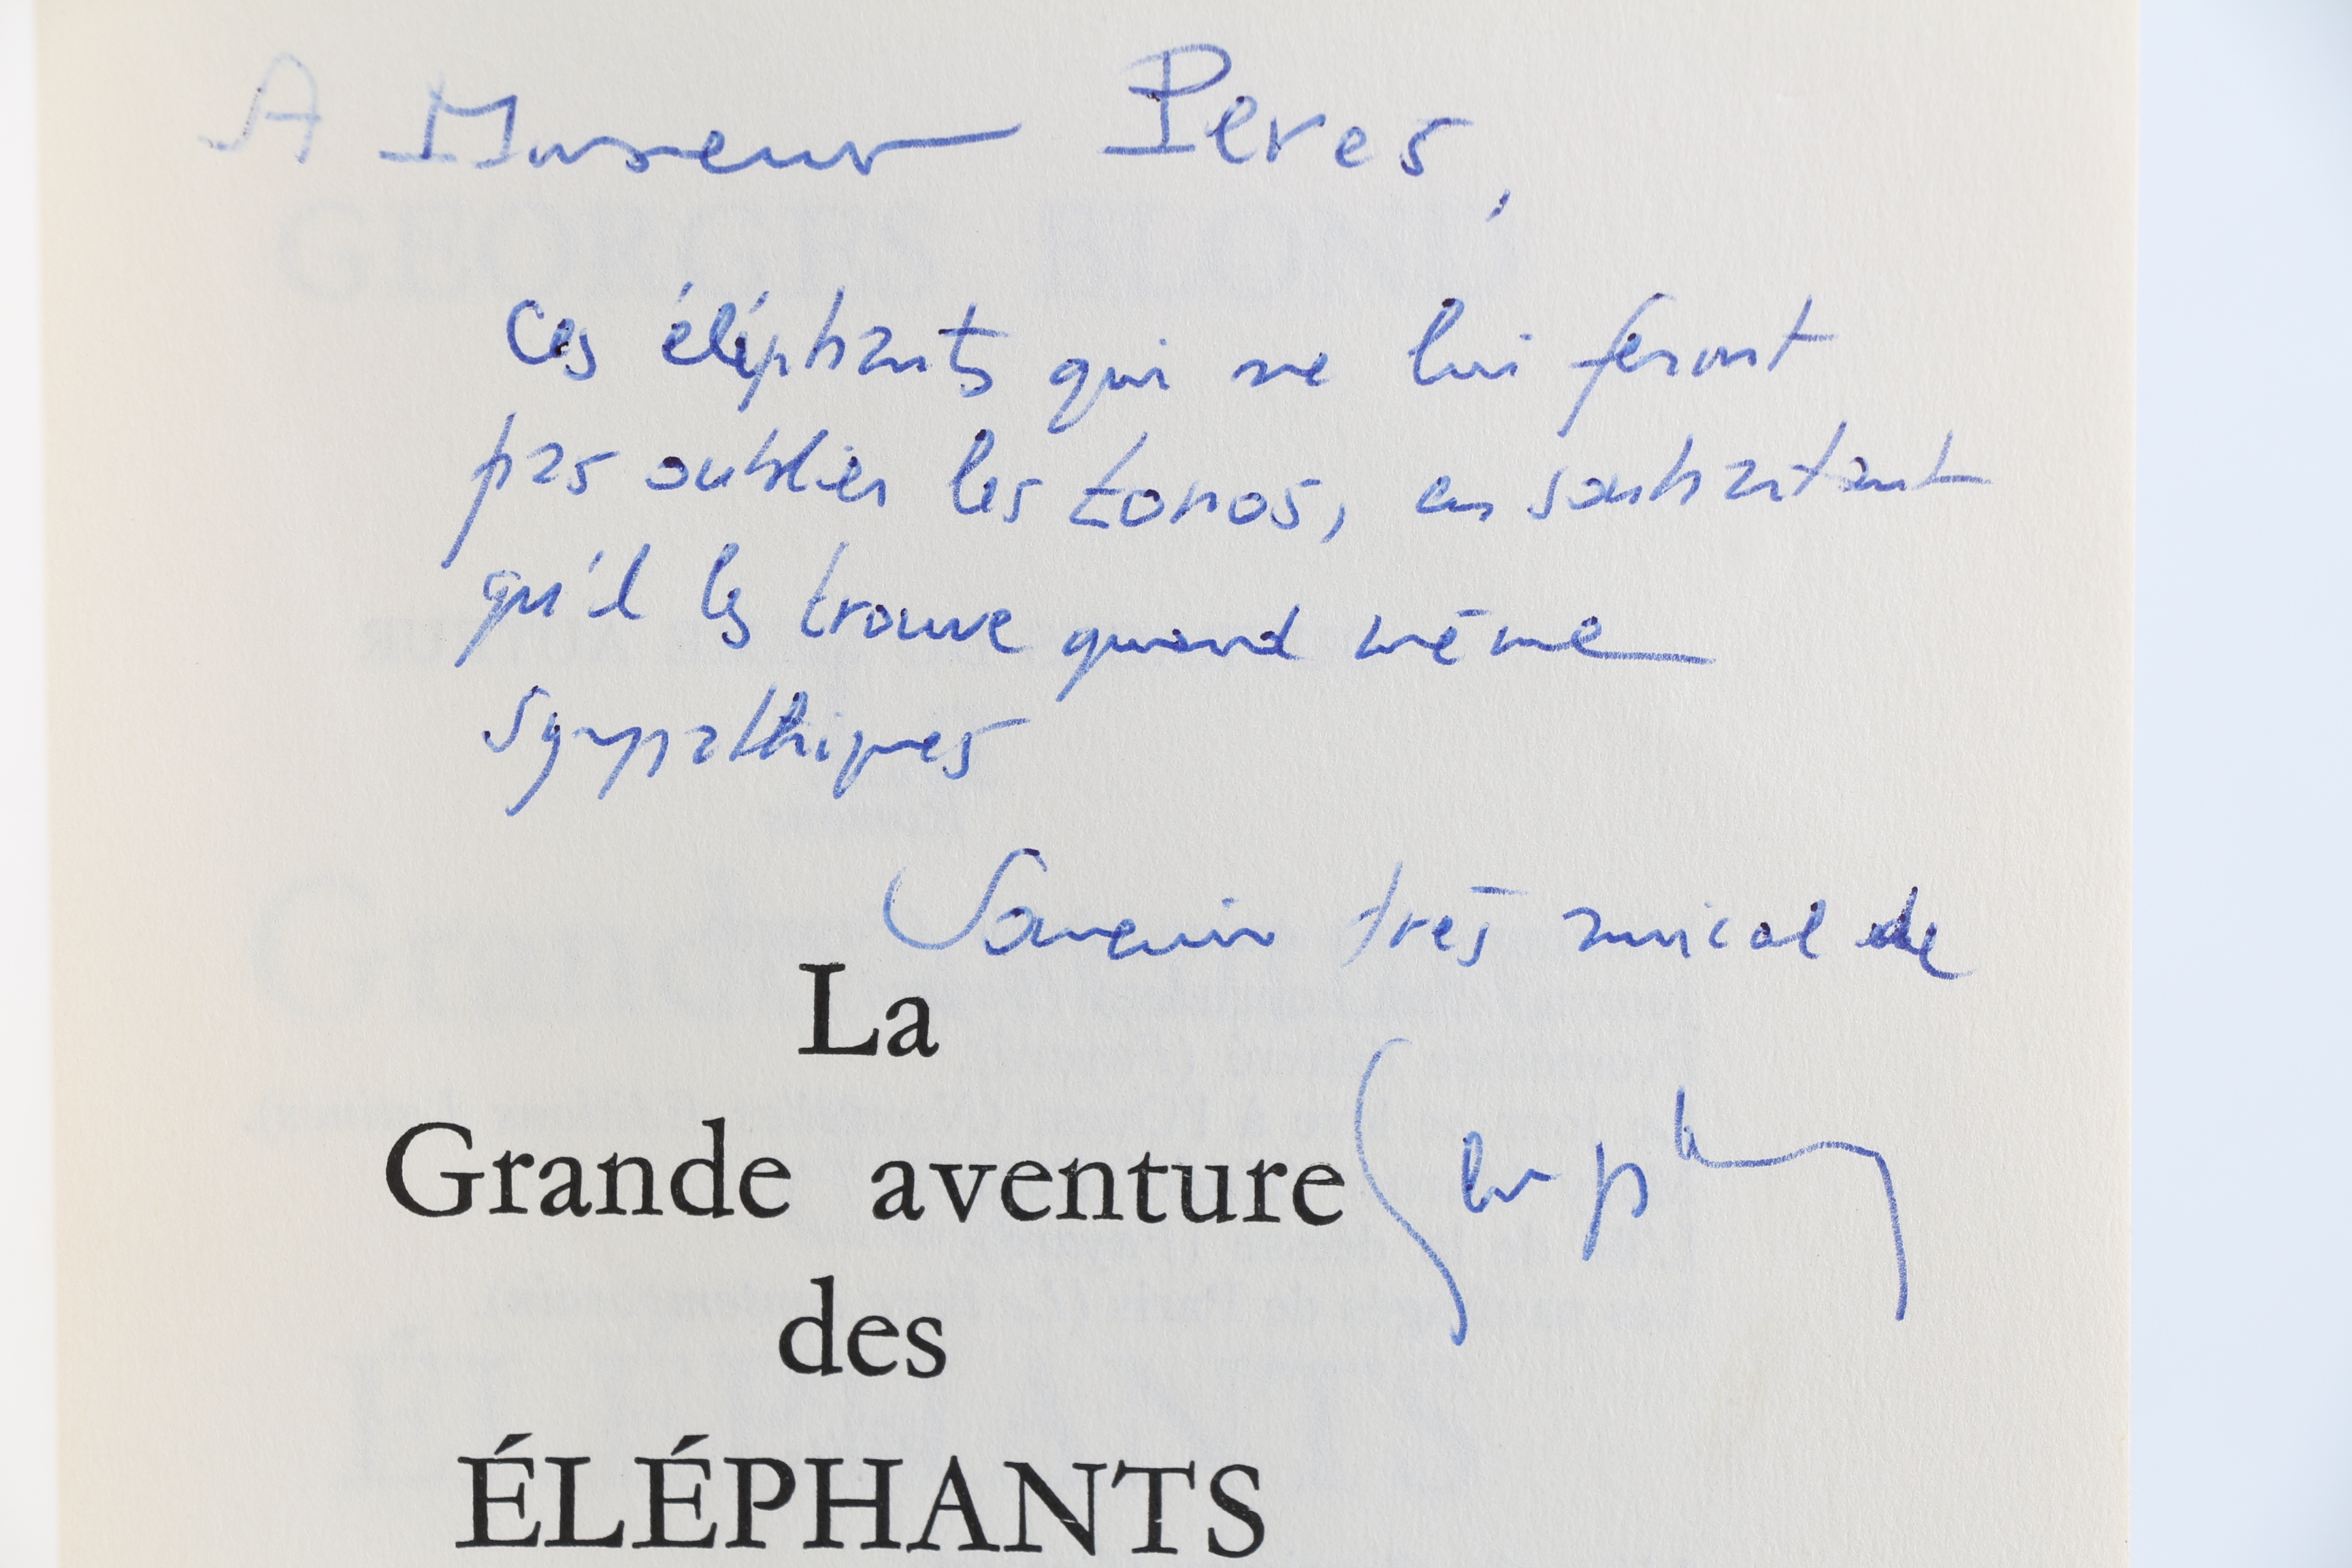 A Monsieur Peres,
Ces éléphants qui ne lui feront
pas oublier les toros, en souhaitant
qu'il les trouve quand même
sympathiques
Souvenir très amical de
La
Grande aventure
des
ÉLÉPHANTS